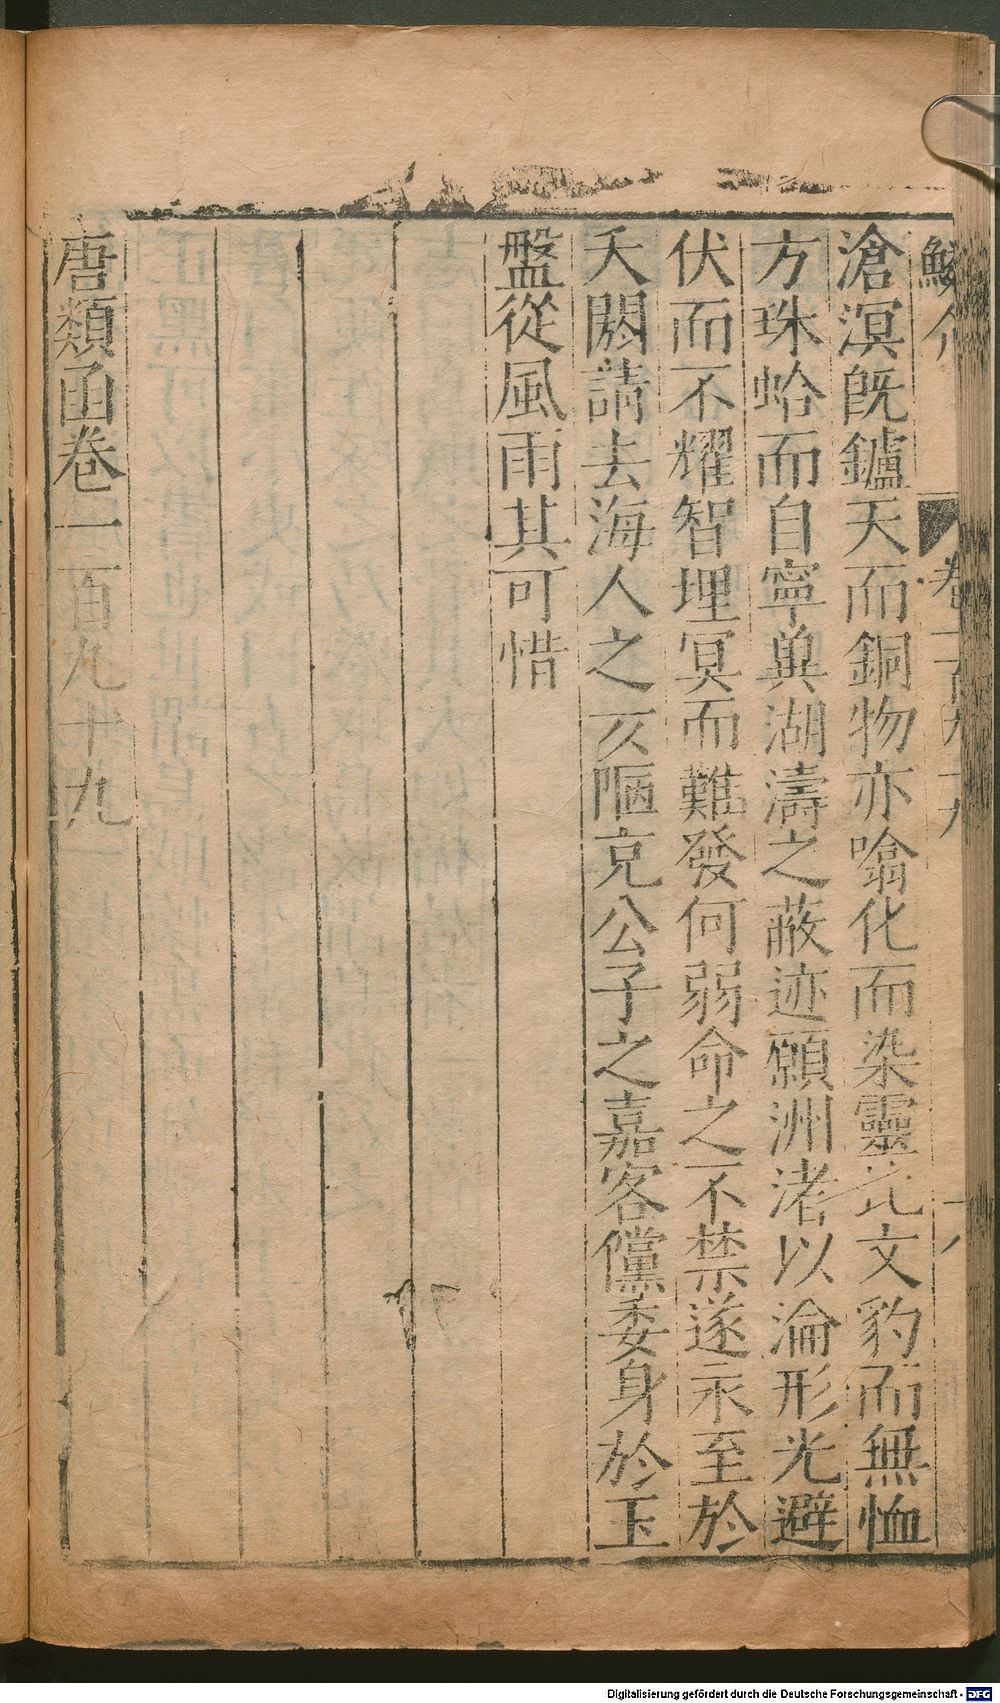 鱗介 卷一百九十九 十八
滄溟旣鑪天而銅物亦噏化而染靈比文豹而無恤
方珠蛤而自寧與湖濤之蔽迹願洲渚以淪形光避
伏而不耀智埋冥而難發何弱命之不禁遂永至於
夭閼請去海人之亥陋充公子之嘉客儻委身於玉
盤從風雨其可惜
唐類函卷一百九十九
Digitalisierung gefördert durch die Deutsche Forschungsgemeinschaft - DFG